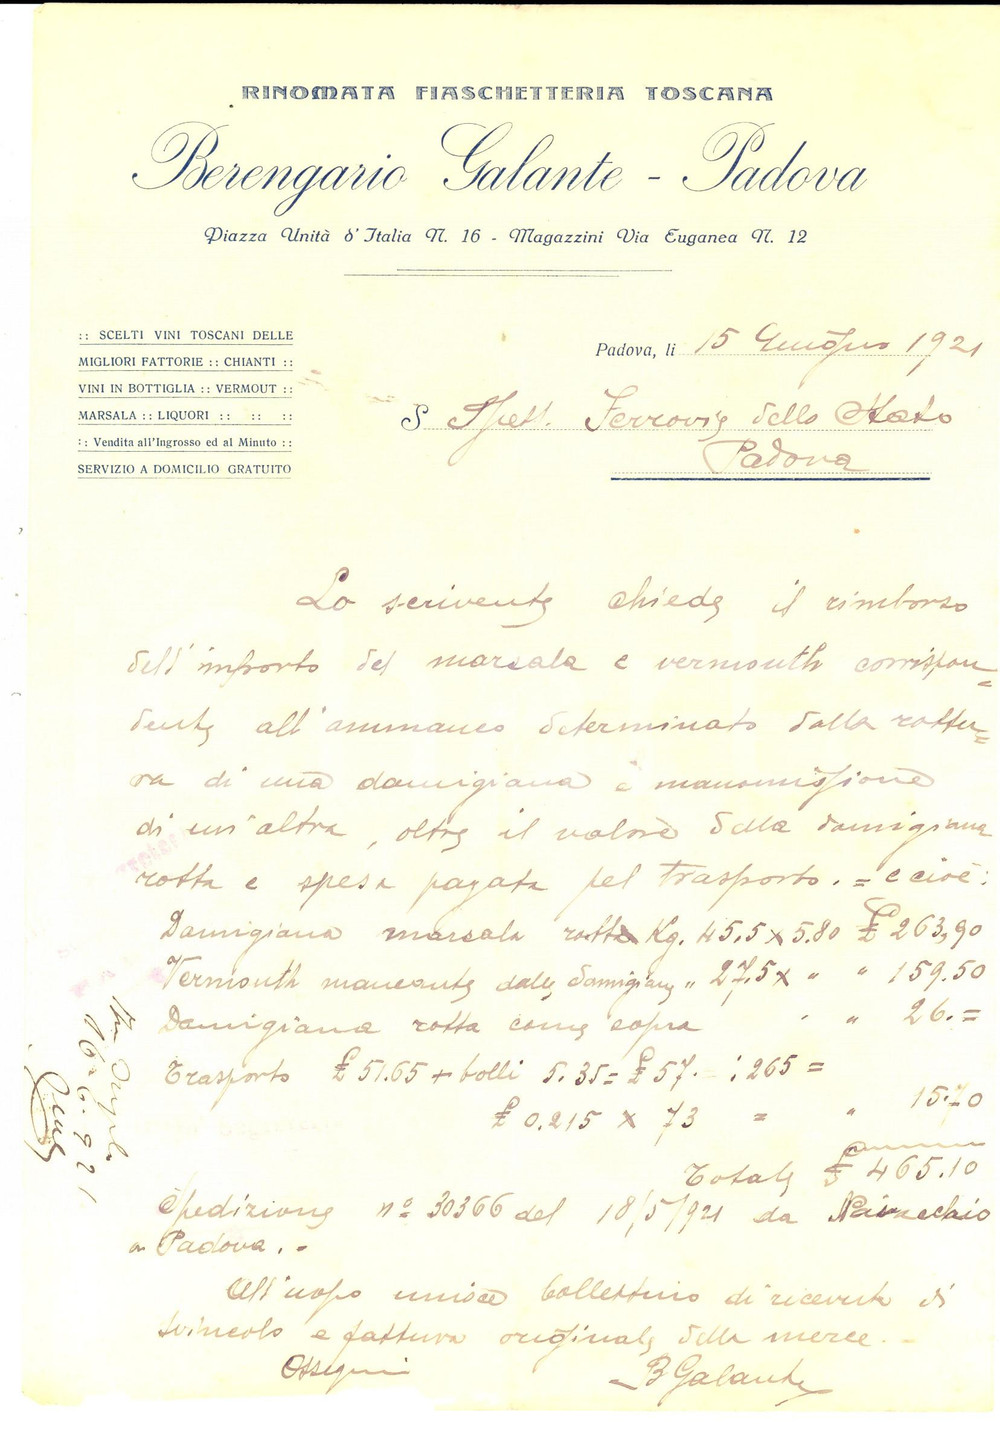 RINOMATA FIASCHETTERIA TOSCANA
Berengario Galante - Padova
Piazza Unità d'Italia N. 16 - Magazzini Via Euganea N. 12
:: SCELTI VINI TOSCANI DELLE
MIGLIORI FATTORIE :: CHIANTI ::
VINI IN BOTTIGLIA :: VERMOUT ::
MARSALA :: LIQUORI :: :: ::
:: Vendita all'Ingrosso ed al Minuto ::
SERVIZIO A DOMICILIO GRATUITO
Padova, li 15 Giugno 1921
S Spett. Ferrovie dello Stato
Padova
Lo scrivente chiede il rimborso
dell'importo del marsala e vermouth corrispon=
dente all'ammanco determinato dalla rottu=
ra di una damigiana e manomissione
di un'altra, oltre il valore della damigiana
rotta e spesa pagata pel trasporto. = e cioè:
Damigiana marsala rotta Kg. 45,5 x 5.80 £ 263,90
Vermouth mancante dalla damigiana " 27,5 x " " 159.50
Damigiana rotta come sopra " 26.=
Trasporto £ 51.65 + bolli 5.35 = £ 57. : 265 =
£ 0.215 x 73 = " 15.70
Totale £ 465.10
Spedizione nº 30366 del 18/5/921 da
a Padova. -
All'uopo unisce bollettino di ricevuta di
svincolo e fattura originale della merce. -
Ossequi
B Galante
16.6.921